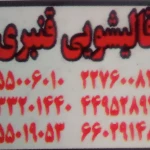 قالیشویی قنبری
۵۵۰۰۶۰۱۰ ۲۲۷۶۰۰۸
۳۳۲۰۱۴۴۰ ۴۴۹۵۲۸۹
۵۵۰۱۹۰۵۳ ۶۶۰۲۹۱۴۸